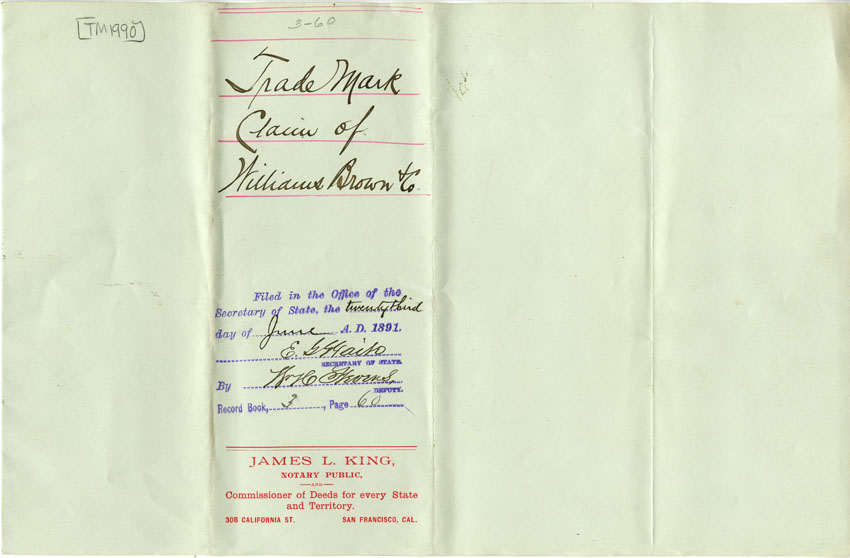 [TM1990]
3-60
Trade Mark
Claim of
Williams Brown & Co.
Filed in the Office of the
Secretary of State, the twentythird
day of June A. D. 1891.
E. G. Waite
SECRETARY OF STATE.
By W. H. Stevens,
DEPUTY.
Record Book, 3, Page 60
JAMES L. KING,
NOTARY PUBLIC,
—AND—
Commissioner of Deeds for every State
and Territory.
308 CALIFORNIA ST. SAN FRANCISCO, CAL.